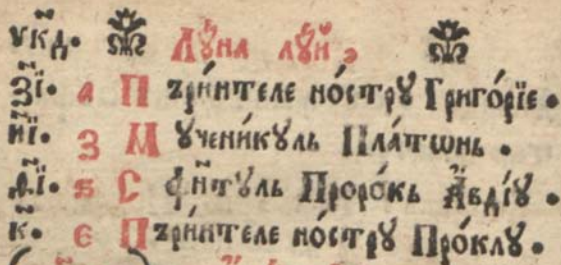 ук҃д. Лꙋ́на лꙋ́й ,
з҃і. а Пъри́нтеле но́стрꙋ Григо́рїе .
и҃і. З Мꙋчени́кꙋль Пла́тѡнь .
ѳ҃і. ѕ Сфи́нтꙋль Проро́кь А҆вді́ꙋ .
к҃. є Пъри́нтеле но́стрꙋ Про́клꙋ .